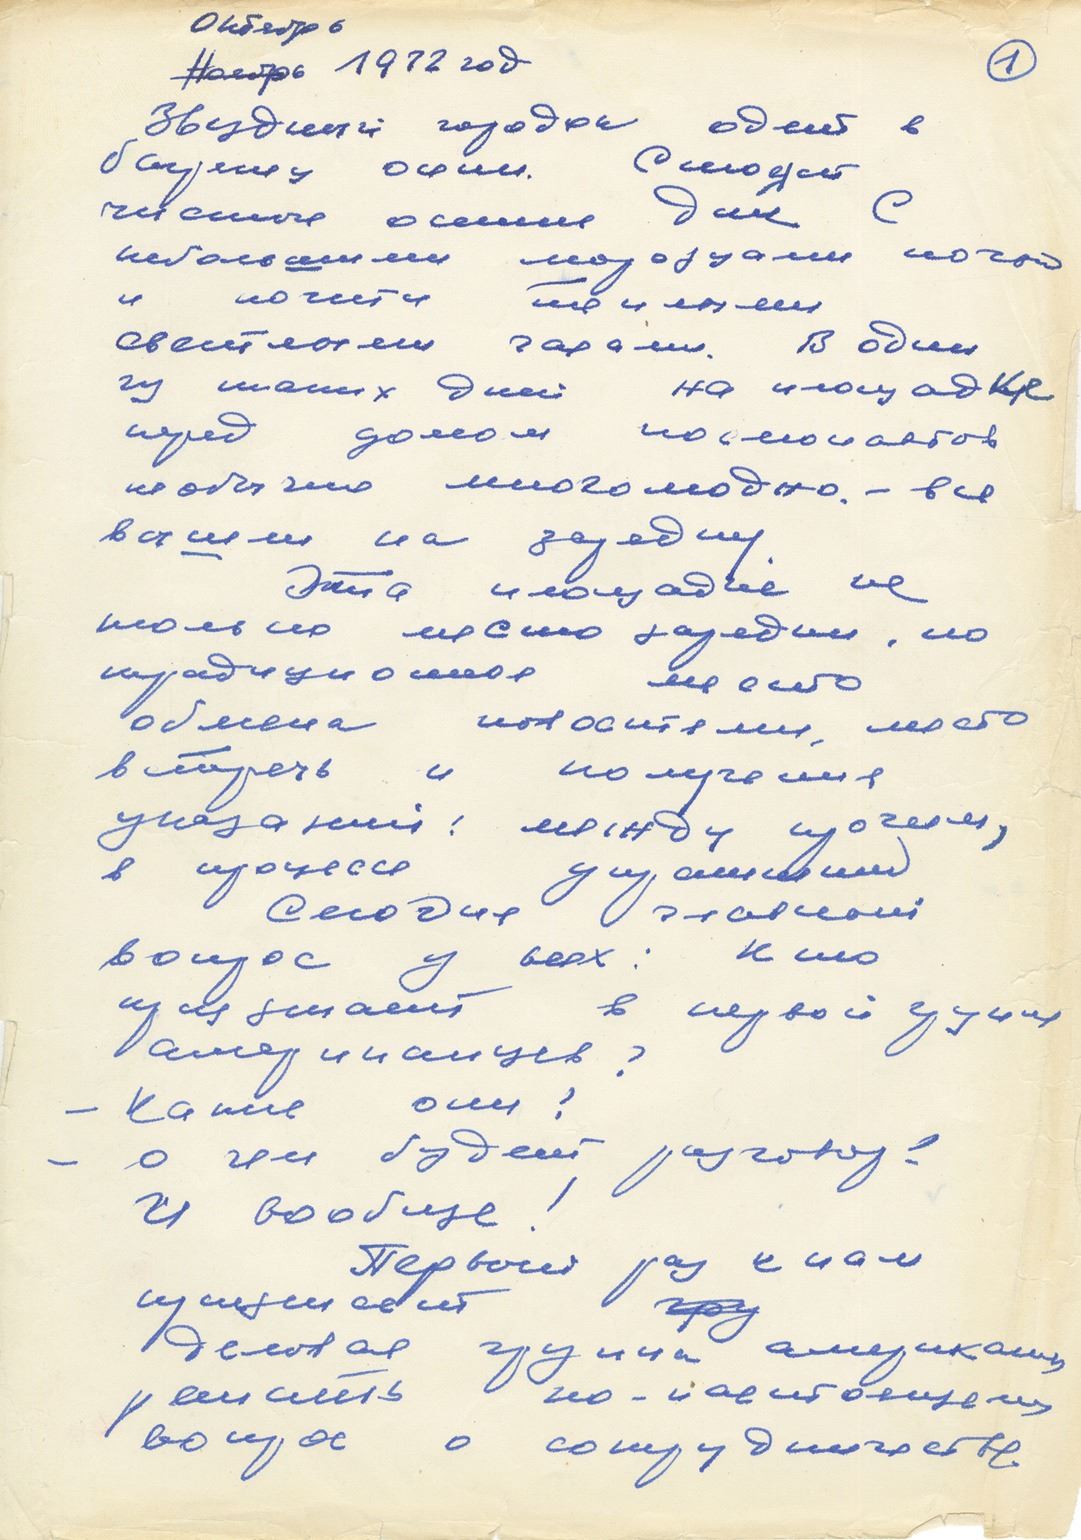 Октябрь
Ноябрь 1972 год
1
Звездный городок одет в
багрянец осени. Стоят
чистые осенние дни С
небольшими морозцами ночью
и почти теплыми
светлыми часами. В один
из таких дней на площадке
перед домом космонавтов
необычно многолюдно. - все
вышли на зарядку.
Эта площадка не
только место зарядки, но
традиционное место
обмена новостями, место
встречь и получения
указаний: между прочим,
в процессе упражнений
Сегодня главный
вопрос у всех: Кто
приезжает в первой группе
американцев?
- Какие они?
- О чем будет разговор?
И вообще!
Первый раз к нам
приезжает гру
деловая группа американцев
решать по-настоящему
вопрос о сотрудничестве.